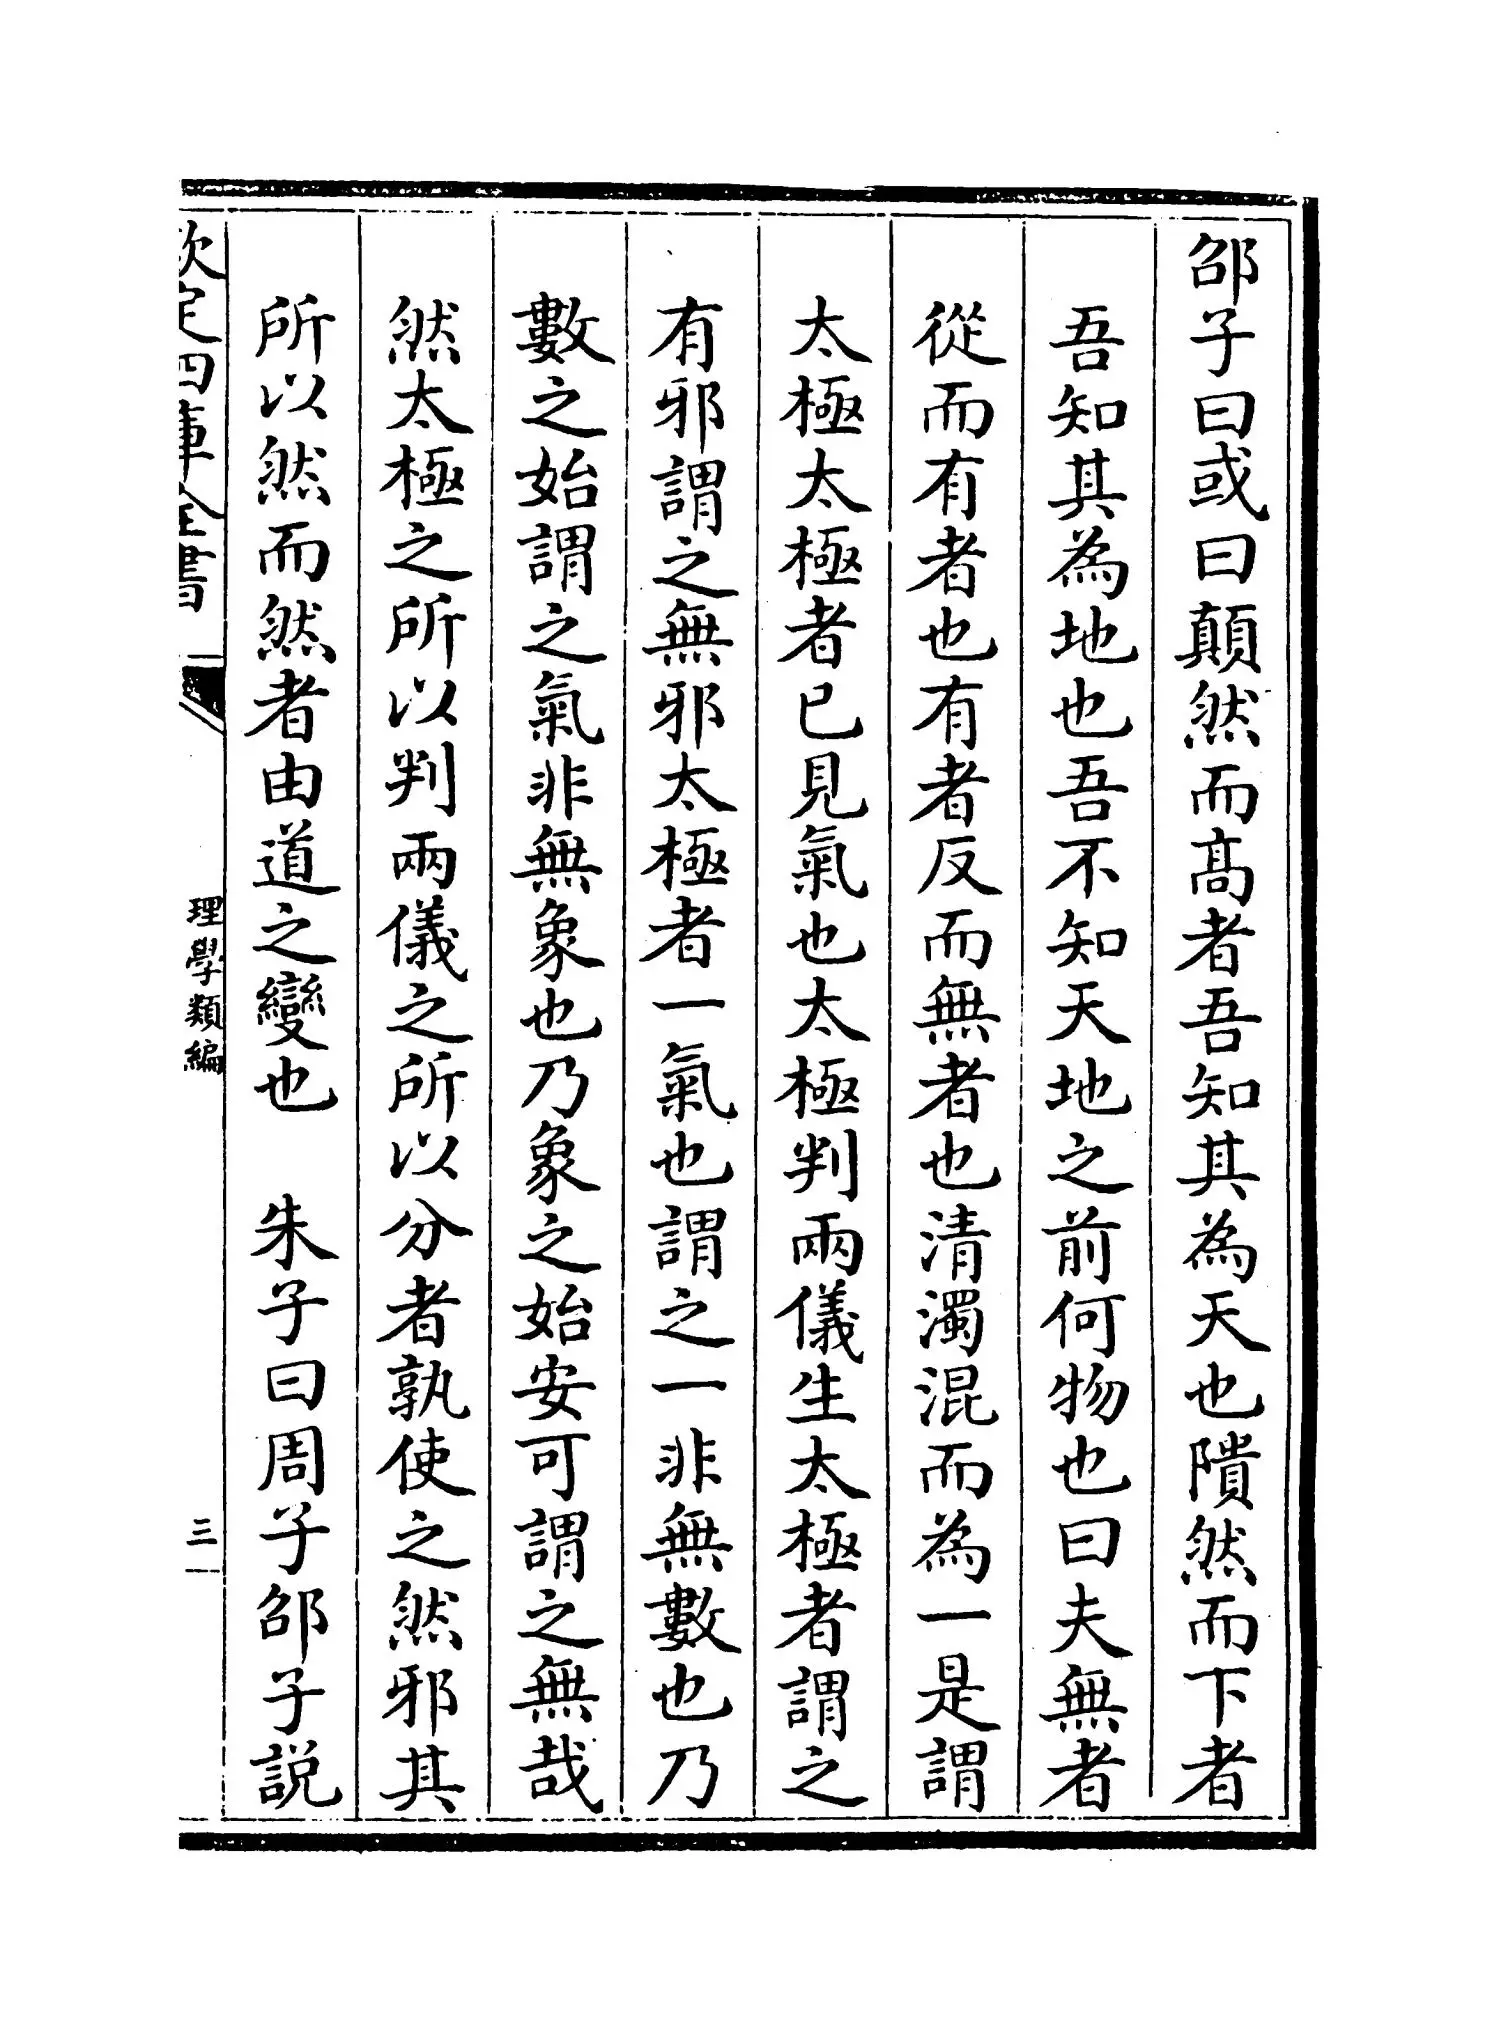 邵子曰或曰顛然而髙者吾知其為天也隤然而下者
吾知其為地也吾不知天地之前何物也曰夫無者
從而有者也有者反而無者也清濁混而為一是謂
太極太極者已見氣也太極判兩儀生太極者謂之
有邪謂之無邪太極者一氣也謂之一非無數也乃
數之始謂之氣非無象也乃象之始安可謂之無哉
然太極之所以判兩儀之所以分者孰使之然邪其
所以然而然者由道之變也　朱子曰周子邵子説
欽定四庫全書
理學類編
三